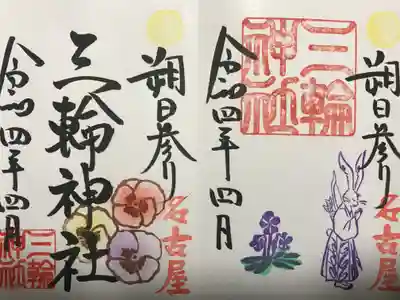 朔日参り
名古屋
三輪神社
令和四年四月
三輪
神社
朔日参り
名古屋
三輪
神社
令和四年四月